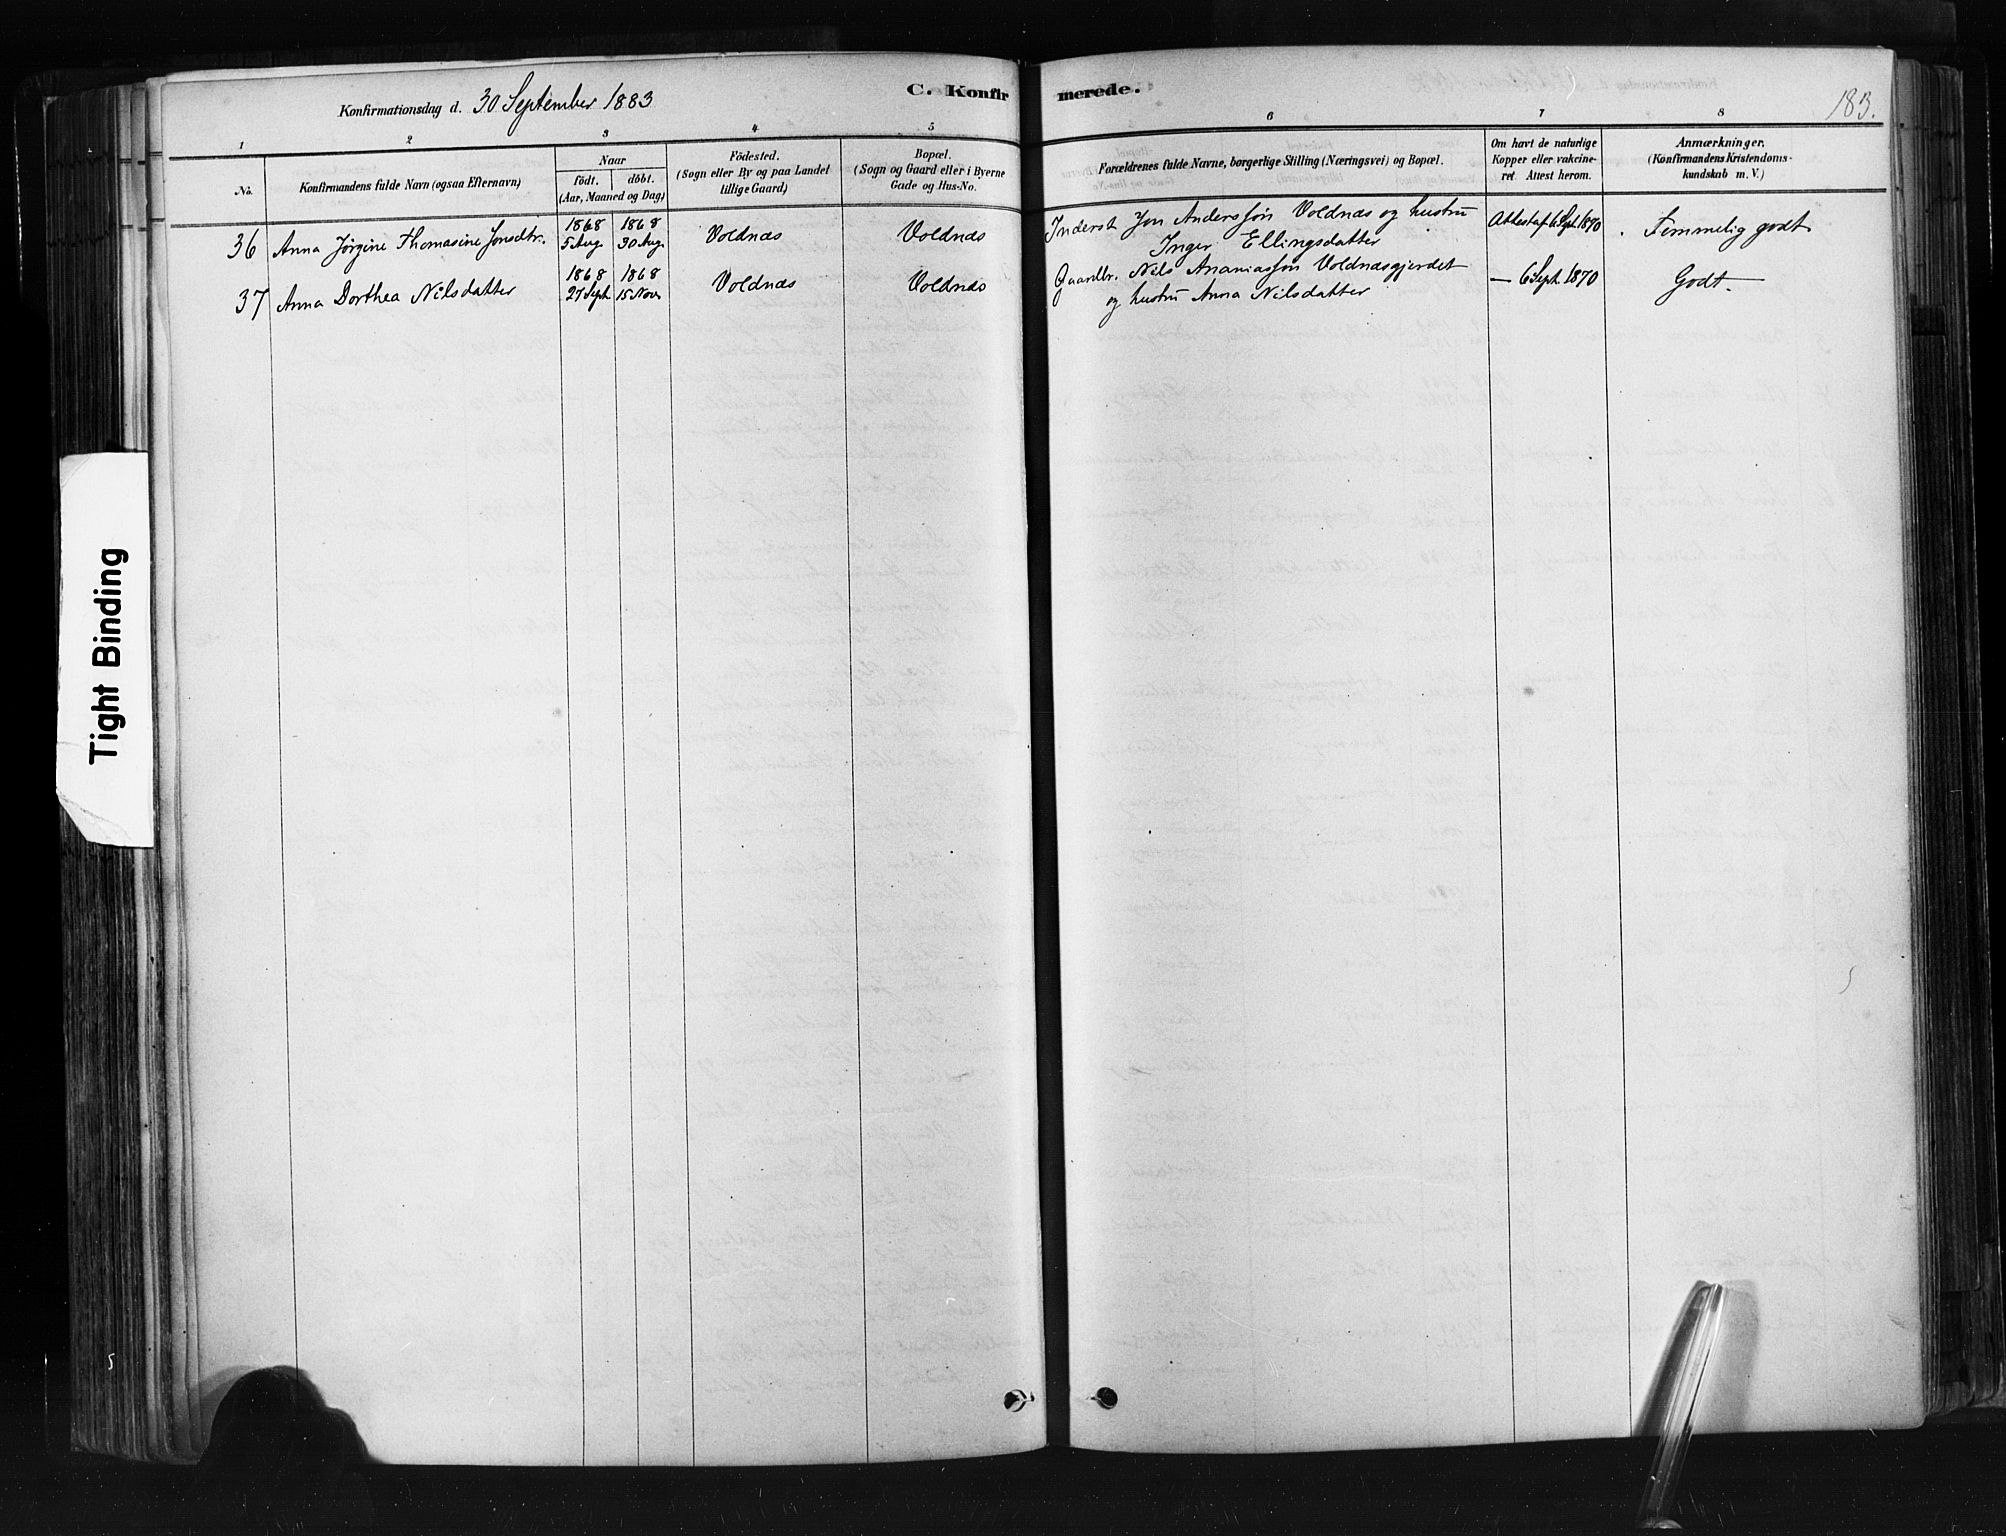 Konfirmationsdag d. 30 September 1883
C. Konfir merede.
183.
1 2 3 4 5 6 7 8
No.
Konfirmandens fulde Navn (ogsaa Efternavn)
Naar
födt. döbt.
(Aar, Maaned og Dag)
Födested.
(Sogn eller By og paa Landet
tillige Gaard)
Bopæl.
(Sogn og Gaard eller i Byerne
Gade og Hus-No.
Forældrenes fulde Navne, borgerlige Stilling (Næringsvei) og Bopæl.
Om havt de naturlige
Kopper eller vakcine-
ret. Attest herom.
Anmærkninger.
(Konfirmandens Kristendoms-
kundskab m. V.)
36 Anna Jørgine Thomasine Jonsdtr.
1868 1868
5 Aug. 30 Aug.
Voldnæs
Voldnæs
Inderst Jon Anderssøn Voldnæs og hustru
Inger Ellingsdatter
Attest af 6 Spt. 1870
Temmelig godt
37 Anna Dorthea Nilsdatter
1868 1868
27 Sept. 15 Nov.
Voldnæs
Voldnæs
Gaardbr. Nils Ananiassøn Voldnæsgjerdet
og hustru Anna Nilsdatter
— 6 Sept. 1870
Godt.
Tight Binding